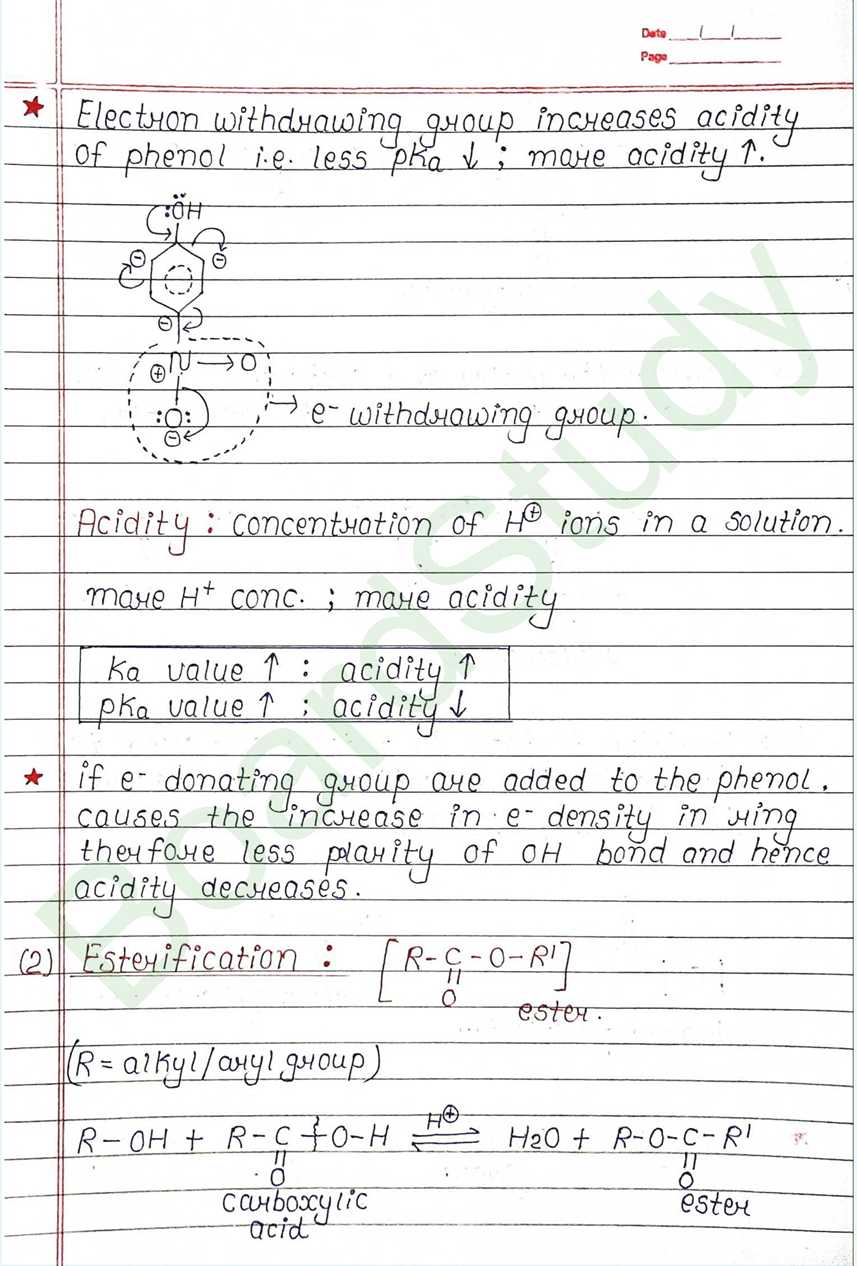 Date __/__/__
Page
★ Electron withdrawing group increases acidity
of phenol i.e. less pKa ↓ ; more acidity ↑.
:ÖH
⊖ ⊖
⊖
⊕ N → O
:O: → e⁻ withdrawing group.
⊖
Acidity : concentration of H⊕ ions in a solution.
more H⁺ conc. ; more acidity
Ka value ↑ : acidity ↑
pKa value ↑ ; acidity ↓
★ if e⁻ donating group are added to the phenol.
causes the increase in e⁻ density in ring
therfore less plarity of OH bond and hence
acidity decreases.
(2) Esterification : [R-C-O-R']
O
ester.
(R = alkyl/aryl group)
R-OH + R-C-O-H ⇌ H⊕ H2O + R-O-C-R'
O O
carboxylic ester
acid
BoardStudy